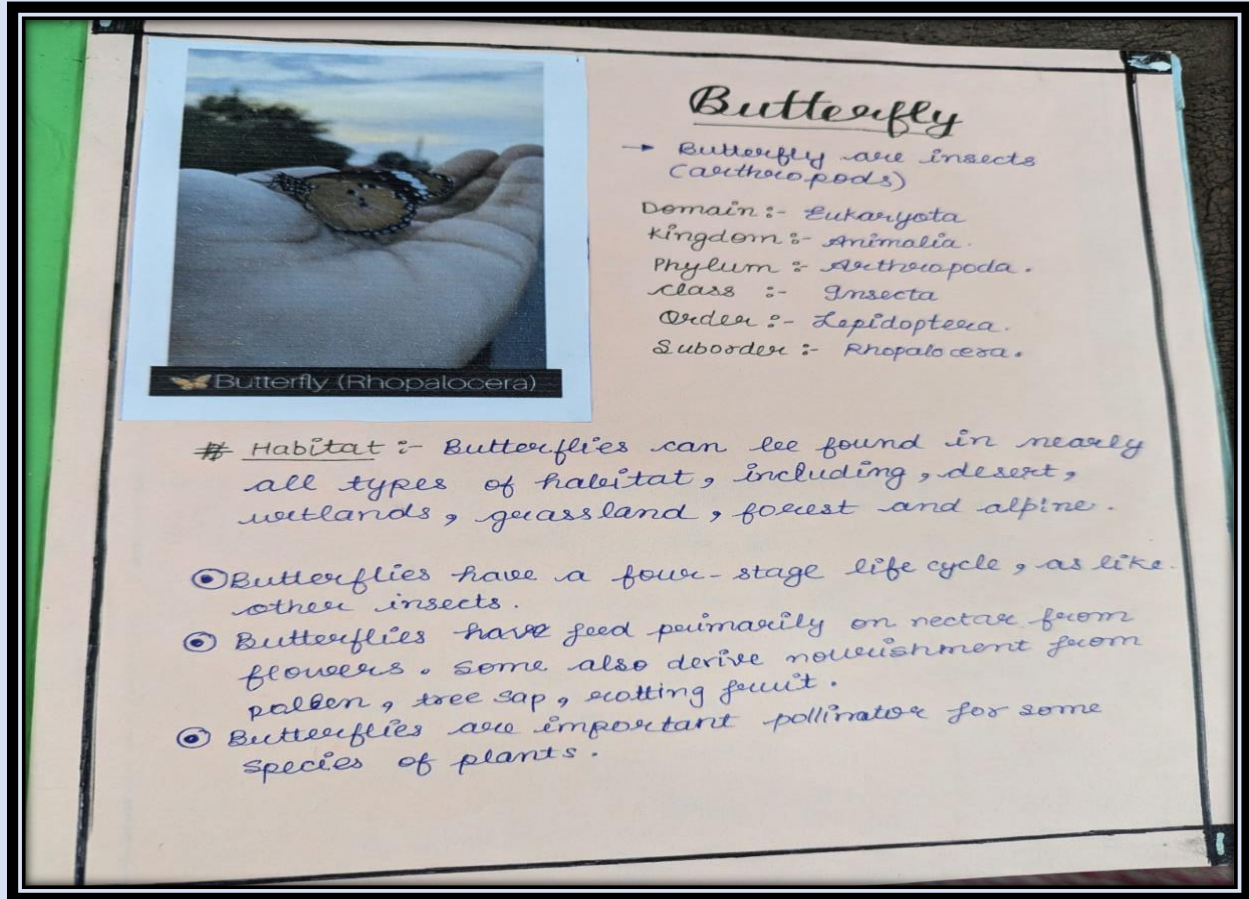 Butterfly
→ Butterfly are insects
(arthropods)
Domain :- Eukaryota
Kingdom :- Animalia.
Phylum :- Arthropoda.
class :- Insecta
Order :- Lepidoptera.
Suborder :- Rhopalocera.
Butterfly (Rhopalocera)
# Habitat :- Butterflies can be found in nearly
all types of habitat, including, desert,
wetlands, grassland, forest and alpine.
Butterflies have a four-stage life cycle, as like
other insects.
Butterflies have feed primarily on nectar from
flowers. Some also derive nourishment from
pollen, tree sap, rotting fruit.
Butterflies are important pollinator for some
species of plants.